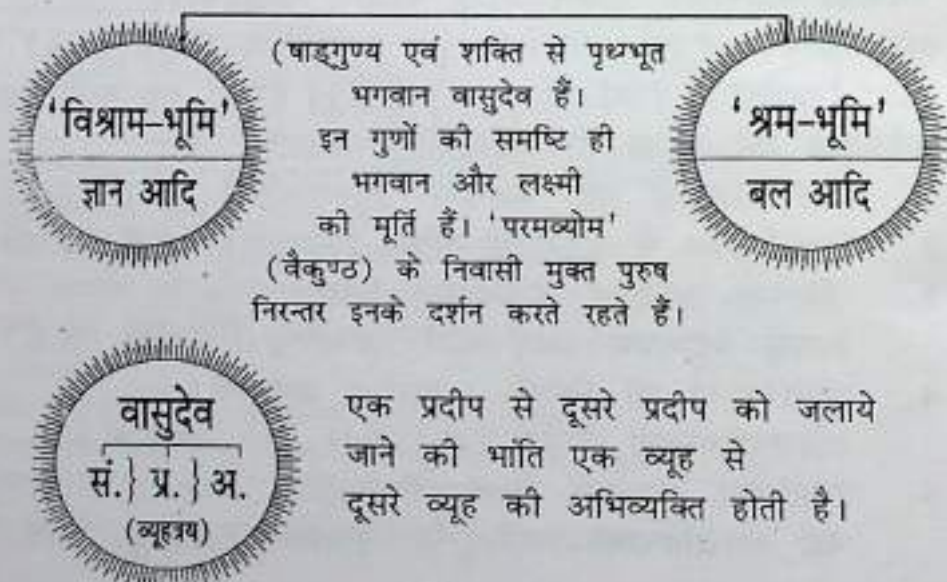 'विश्राम-भूमि'
ज्ञान आदि
(षाड्गुण्य एवं शक्ति से पृथ्ग्भूत
भगवान वासुदेव हैं।
इन गुणों की समष्टि ही
भगवान और लक्ष्मी
की मूर्ति हैं। 'परमव्योम'
(वैकुण्ठ) के निवासी मुक्त पुरुष
निरन्तर इनके दर्शन करते रहते हैं।
'श्रम-भूमि'
बल आदि
वासुदेव
सं.} प्र.} अ.
(व्यूहत्रय)
एक प्रदीप से दूसरे प्रदीप को जलाये
जाने की भांति एक व्यूह से
दूसरे व्यूह की अभिव्यक्ति होती है।